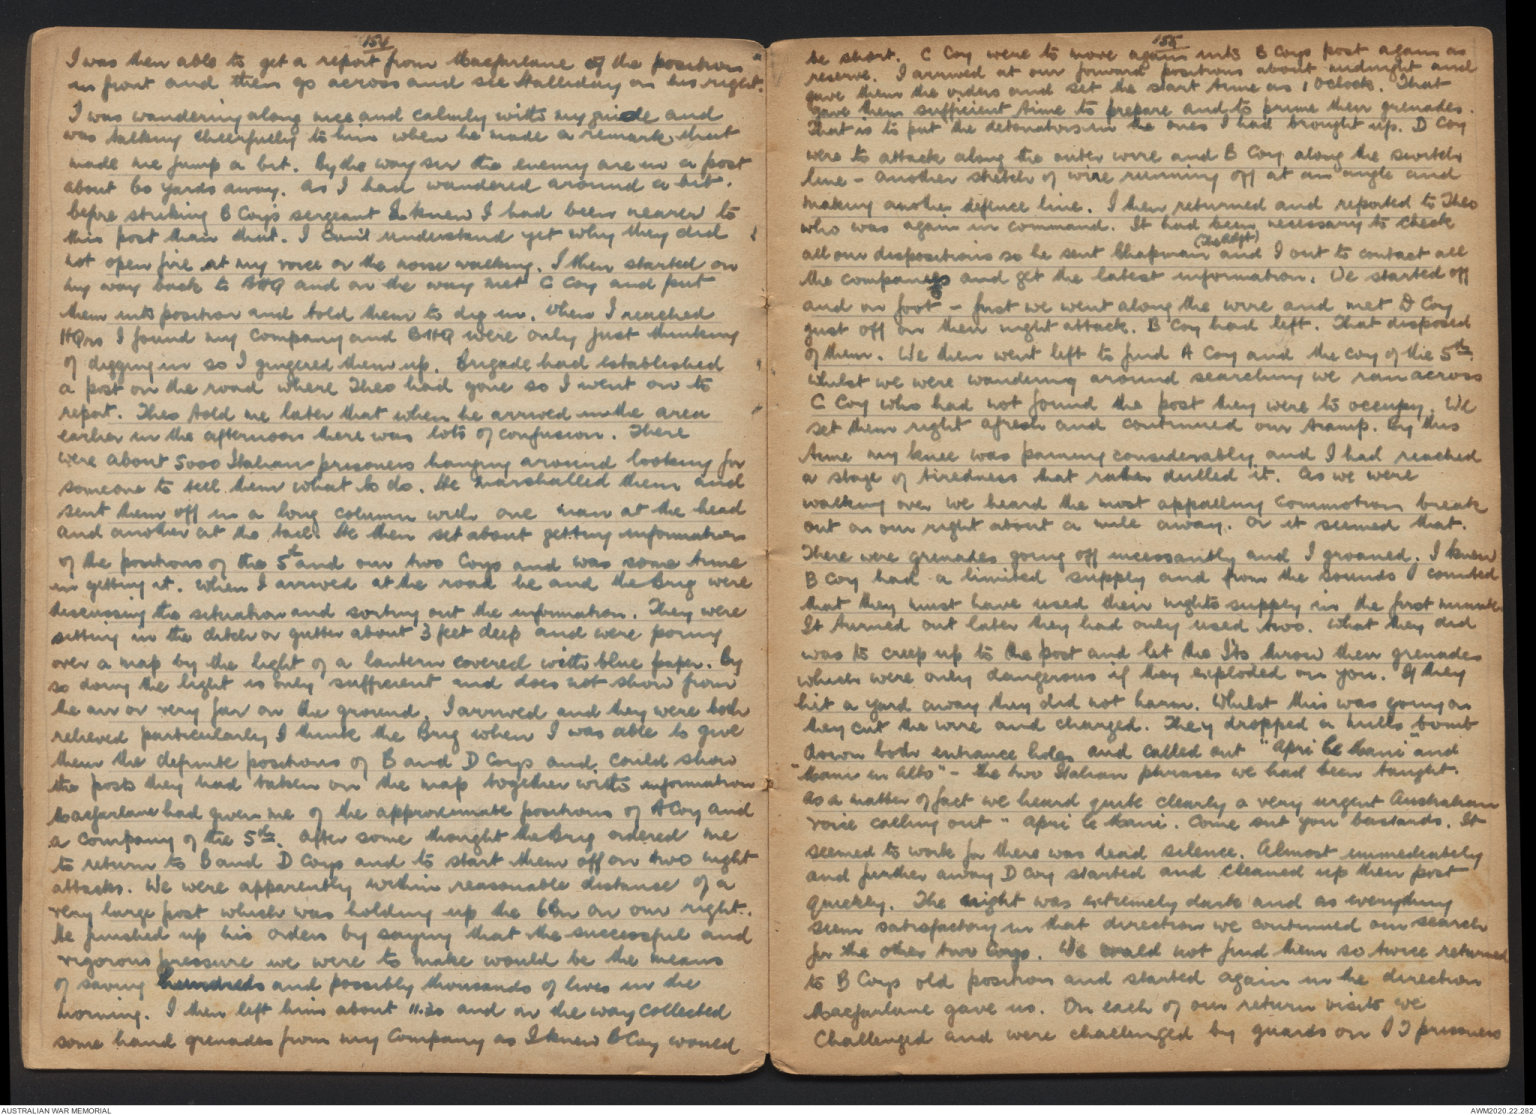 154
I was then able to get a report from Macfarlane of the positions
in front and then go across and see Halliday on his right.
I was wandering along nice and calmly with my guide and
was talking cheerfully to him when he made a remark that
made me jump a bit. By the way sir the enemy are in a post
about 60 yards away. As I had wandered around a bit.
before striking B Coys sergeant I knew I had been nearer to
this post than that. I can't understand yet why they did
not open fire at my voice or the noise walking. I then started on
my way back to BHQ and on the way met C Coy and put
them into position and told them to dig in. When I reached
HQrs I found my Company and BHQ were only just thinking
of digging in so I gingered them up. Brigade had established
a post on the road where Theo had gone so I went on to
report. Theo told me later that when he arrived in the area
earlier in the afternoon there was lots of confusion. There
were about 5000 Italian prisoners hanging around looking for
someone to tell them what to do. He marshalled them and
sent them off in a long column with one man at the head
and another at the tail. He then set about getting information
of the positions of the 5th and our two Coys and was some time
in getting it. When I arrived at the road he and the Brig were
discussing the situation and sorting out the information. They were
sitting in the ditch or gutter about 3 feet deep and were poring
over a map by the light of a lantern covered with blue paper. By
so doing the light is only sufficient and does not show from
the air or very far on the ground. I arrived and they were both
relieved particularly I think the Brig when I was able to give
them the definite positions of B and D Coys and could show
the posts they had taken on the map together with information
Macfarlane had given me of the approximate positions of A Coy and
a company of the 5th. After some thought the Brig ordered me
to return to B and D Coys and to start them off on two night
attacks. We were apparently within reasonable distance of a
very large post which was holding up the 6Bn on our right.
He finished up his orders by saying that the successful and
vigorous pressure we were to make would be the means
of saving hundreds and possibly thousands of lives in the
morning. I then left him about 11.20 and on the way collected
some hand grenades from my Company as I knew B Coy would
155
be short. C Coy were to move again into B Coys post again as
reserve. I arrived at our forward positions about midnight and
gave them the orders and set the start time as 1 oclock. That
gave them sufficient time to prepare and to prime their grenades.
That is to put the detonators in the ones I had brought up. D Coy
were to attack along the outer wire and B Coy along the switch
line - another stretch of wire running off at an angle and
making another defence line. I then returned and reported to Theo
who was again in command. It had been necessary to check
(The Adjt)
all our dispositions so he sent Chapman and I out to contact all
the companies and get the latest information. We started off
and on foot - first we went along the wire and met D Coy
just off on their night attack. B Coy had left. That disposed
of them. We then went left to find A Coy and the coy of the 5th.
Whilst we were wandering around searching we ran across
C Coy who had not found the post they were to occupy. We
set them right afresh and continued our tramp. By this
time my knee was paining considerably and I had reached
a stage of tiredness that rather dulled it. As we were
walking over we heard the most appalling commotion break
out on our right about a mile away. Or it seemed that.
There were grenades going off incessantly and I groaned. I knew
B Coy had a limited supply and from the sounds I counted
that they must have used their nights supply in the first minute
It turned out later they had only used two. What they did
was to creep up to the post and let the I'ts throw their grenades
which were only dangerous if they exploded on you. If they
hit a yard away they did not harm. Whilst this was going on
they cut the wire and charged. They dropped a mills bomb
down both entrance holes and called out "Apri le mani" and
"Mani in alto" - the two Italian phrases we had been taught.
As a matter of fact we heard quite clearly a very urgent Australian
voice calling out "Apri le mani. Come out you bastards. It
seemed to work for there was dead silence. Almost immediately
and further away D Coy started and cleaned up their post
quickly. The night was extremely dark and as everything
seem satisfactory in that direction we continued our search
for the other two Coys. We could not find them so twice returned
to B Coys old position and started again in the direction
Macfarlane gave us. On each of our return visits we
Challenged and were challenged by guards on I I prisoners
AUSTRALIAN WAR MEMORIAL
AWM2020.22.282